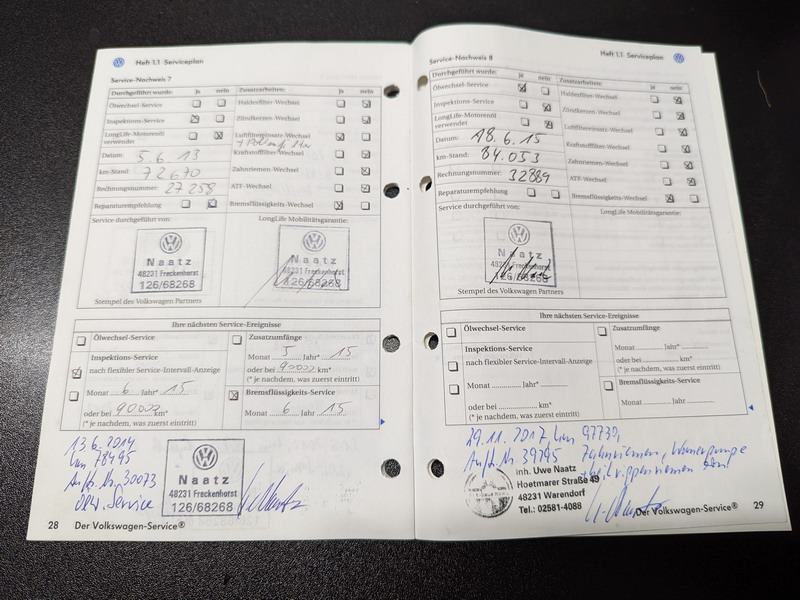 Heft 1.1 Serviceplan
Service-Nachweis 7
Durchgeführt wurde: ja nein
Ölwechsel-Service
Inspektions-Service
LongLife-Motorenöl verwendet
Datum: 5.6.13
km-Stand: 72670
Rechnungsnummer: 27258
Reparaturempfehlung
Zusatzarbeiten: ja nein
Haldexfilter-Wechsel
Zündkerzen-Wechsel
Luftfiltereinsatz-Wechsel
Kraftstofffilter-Wechsel
Zahnriemen-Wechsel
ATF-Wechsel
Bremsflüssigkeits-Wechsel
Service durchgeführt von:
LongLife Mobilitätsgarantie:
Naatz
48231 Freckenhorst
126/68268
Naatz
48231 Freckenhorst
126/68268
Stempel des Volkswagen Partners
Ihre nächsten Service-Ereignisse
Ölwechsel-Service
Inspektions-Service
nach flexibler Service-Intervall-Anzeige
Monat 6 Jahr* 15
oder bei 90000 km*
(* je nachdem, was zuerst eintritt)
Zusatzumfänge
Monat 5 Jahr* 15
oder bei 90000 km*
(* je nachdem, was zuerst eintritt)
Bremsflüssigkeits-Service
Monat 6 Jahr 15
13.6.2014
km 78495
Auftr. Nr. 30073
Service
Naatz
48231 Freckenhorst
126/68268
28 Der Volkswagen-Service®
Service-Nachweis 8
Heft 1.1 Serviceplan
Durchgeführt wurde: ja nein
Ölwechsel-Service
Inspektions-Service
LongLife-Motorenöl verwendet
Datum: 18.6.15
km-Stand: 84.053
Rechnungsnummer: 32889
Reparaturempfehlung
Zusatzarbeiten: ja nein
Haldexfilter-Wechsel
Zündkerzen-Wechsel
Luftfiltereinsatz-Wechsel
Kraftstofffilter-Wechsel
Zahnriemen-Wechsel
ATF-Wechsel
Bremsflüssigkeits-Wechsel
Service durchgeführt von:
LongLife Mobilitätsgarantie:
Naatz
48231 Freckenhorst
126/68268
Stempel des Volkswagen Partners
Ihre nächsten Service-Ereignisse
Ölwechsel-Service
Inspektions-Service
nach flexibler Service-Intervall-Anzeige
Monat Jahr*
oder bei km*
(* je nachdem, was zuerst eintritt)
Zusatzumfänge
Monat Jahr*
oder bei km*
(* je nachdem, was zuerst eintritt)
Bremsflüssigkeits-Service
Monat Jahr
29.11.2017 km 97730,
Auftr. Nr. 39795 Zahnriemen, Wasserpumpe
Inh. Uwe Naatz
Hoetmarer Straße 49
48231 Warendorf
Tel.: 02581-4088
Der Volkswagen-Service® 29